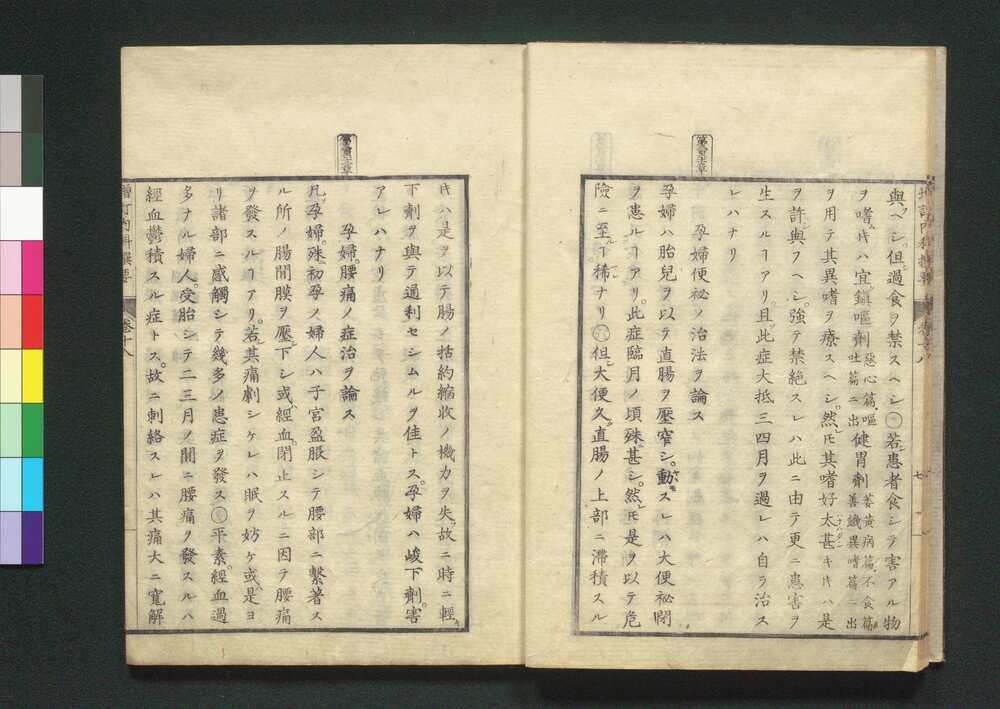 與ヘシ。但過食ヲ禁スヘシ○若患者食シテ害アル物
ヲ嗜ムキハ宜鎮嘔劑惡心篇嘔吐篇ニ出健胃劑萎黃病篇不食篇善饑異嗜篇ニ出
ヲ用テ其異嗜ヲ療スヘシ。然𪜈其嗜好太甚キ𪜈ハ是
ヲ許與フヘシ。強テ禁絶スレハ此ニ由テ更ニ患害ヲ
生スルヿアリ。且此症大抵三四月ヲ過レハ自ラ治ス
レハナリ
孕婦便祕ノ治法ヲ論ス
孕婦ハ胎兒ヲ以テ直腸ヲ壓窄シ。動モスレハ大便祕閉
ヲ患ルヿアリ。此症臨月ノ頃殊ニ甚シ。然𪜈是ヲ以テ危
險ニ至ルヿ稀ナリ○但大便久ク直腸ノ上部ニ滯積スル
𪜈ハ是ヲ以テ腸ノ括約縮收ノ機力ヲ失。故ニ時ニ輕
下劑ヲ與テ通利セシムルヲ佳トス。孕婦ハ峻下劑。害
アレハナリ
孕婦。腰痛ノ症治ヲ論ス
凡孕婦。殊ニ初孕ノ婦人ハ子宮盈脹シテ腰部ニ繫著ス
ル所ノ腸間膜ヲ壓下シ或ハ經血。閉止スルニ因テ腰痛
ヲ發スルヿアリ。若其痛劇シケレハ眠ヲ妨ケ或ハ是ヨ
リ諸部ニ感觸シテ幾多ノ患症ヲ發ス○平素。經血過
多ナル婦人。受胎シテ二三月ノ間ニ腰痛ヲ發スルハ
經血鬱積スル症トス。故ニ刺絡スレハ其痛大ニ寬解
增訂內科撰要
卷十八